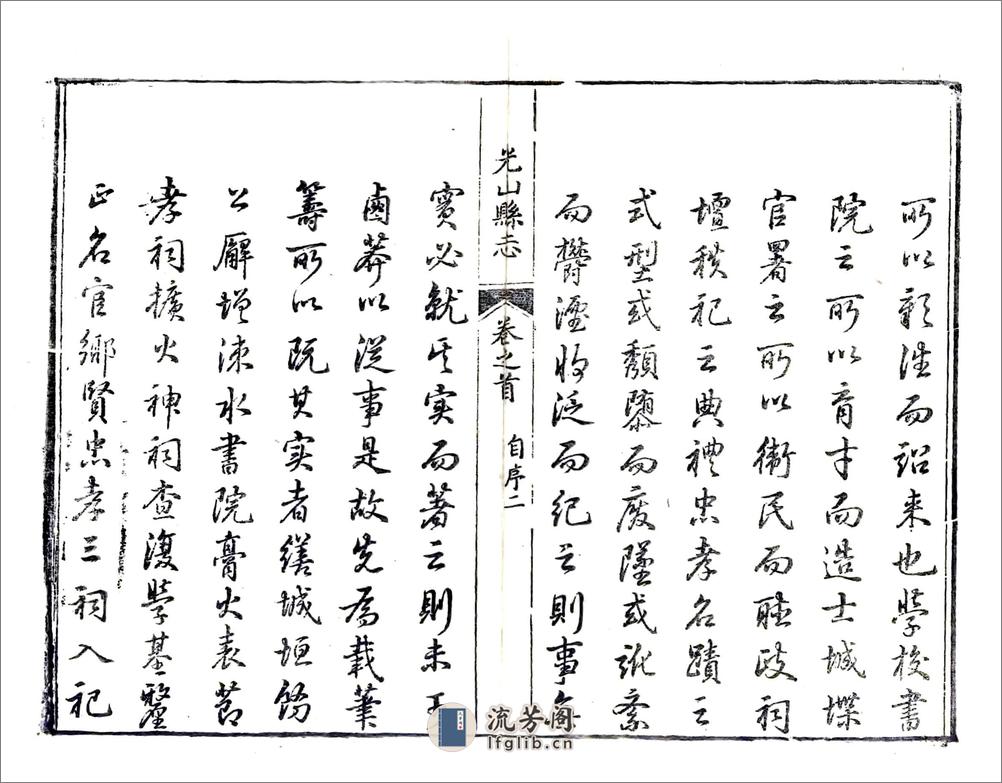 所以彰往而詔来也學校書
院之所以育才而造士城堞
官署之所以衛民而聽政祠
壇秩祀之典禮忠孝名蹟之
式型或頹隳而廢墜或訛紊
而欝湮將泛而紀之則事無
光山縣志
卷之首
自序二
實必就其实而著之則未可
鹵莽以從事是故先為載筆
籌所以既其实者繕城垣飭
公廨增涑水書院膏火表節
孝祠擴火神祠查復學基釐
正名宦鄉賢忠孝三祠入祀
流芳阁
lfglib.cn